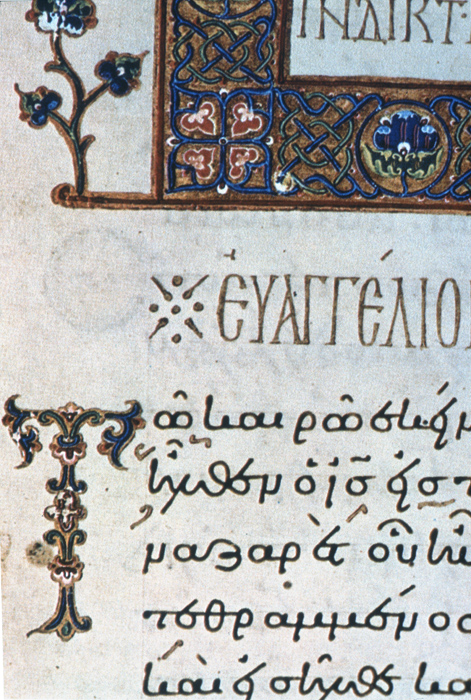 ΙΝΔΙΚΤ
ἘΥΑΓΓΈΛΙΟ
Τῶ καιρῶ ἐκείν
ἦλθεν ὁ ἰ̅ς̅ εἰς τ
ναζαρὲτ οὗ ἦν
τεθραμμένο
καὶ εἰσῆλθε κα